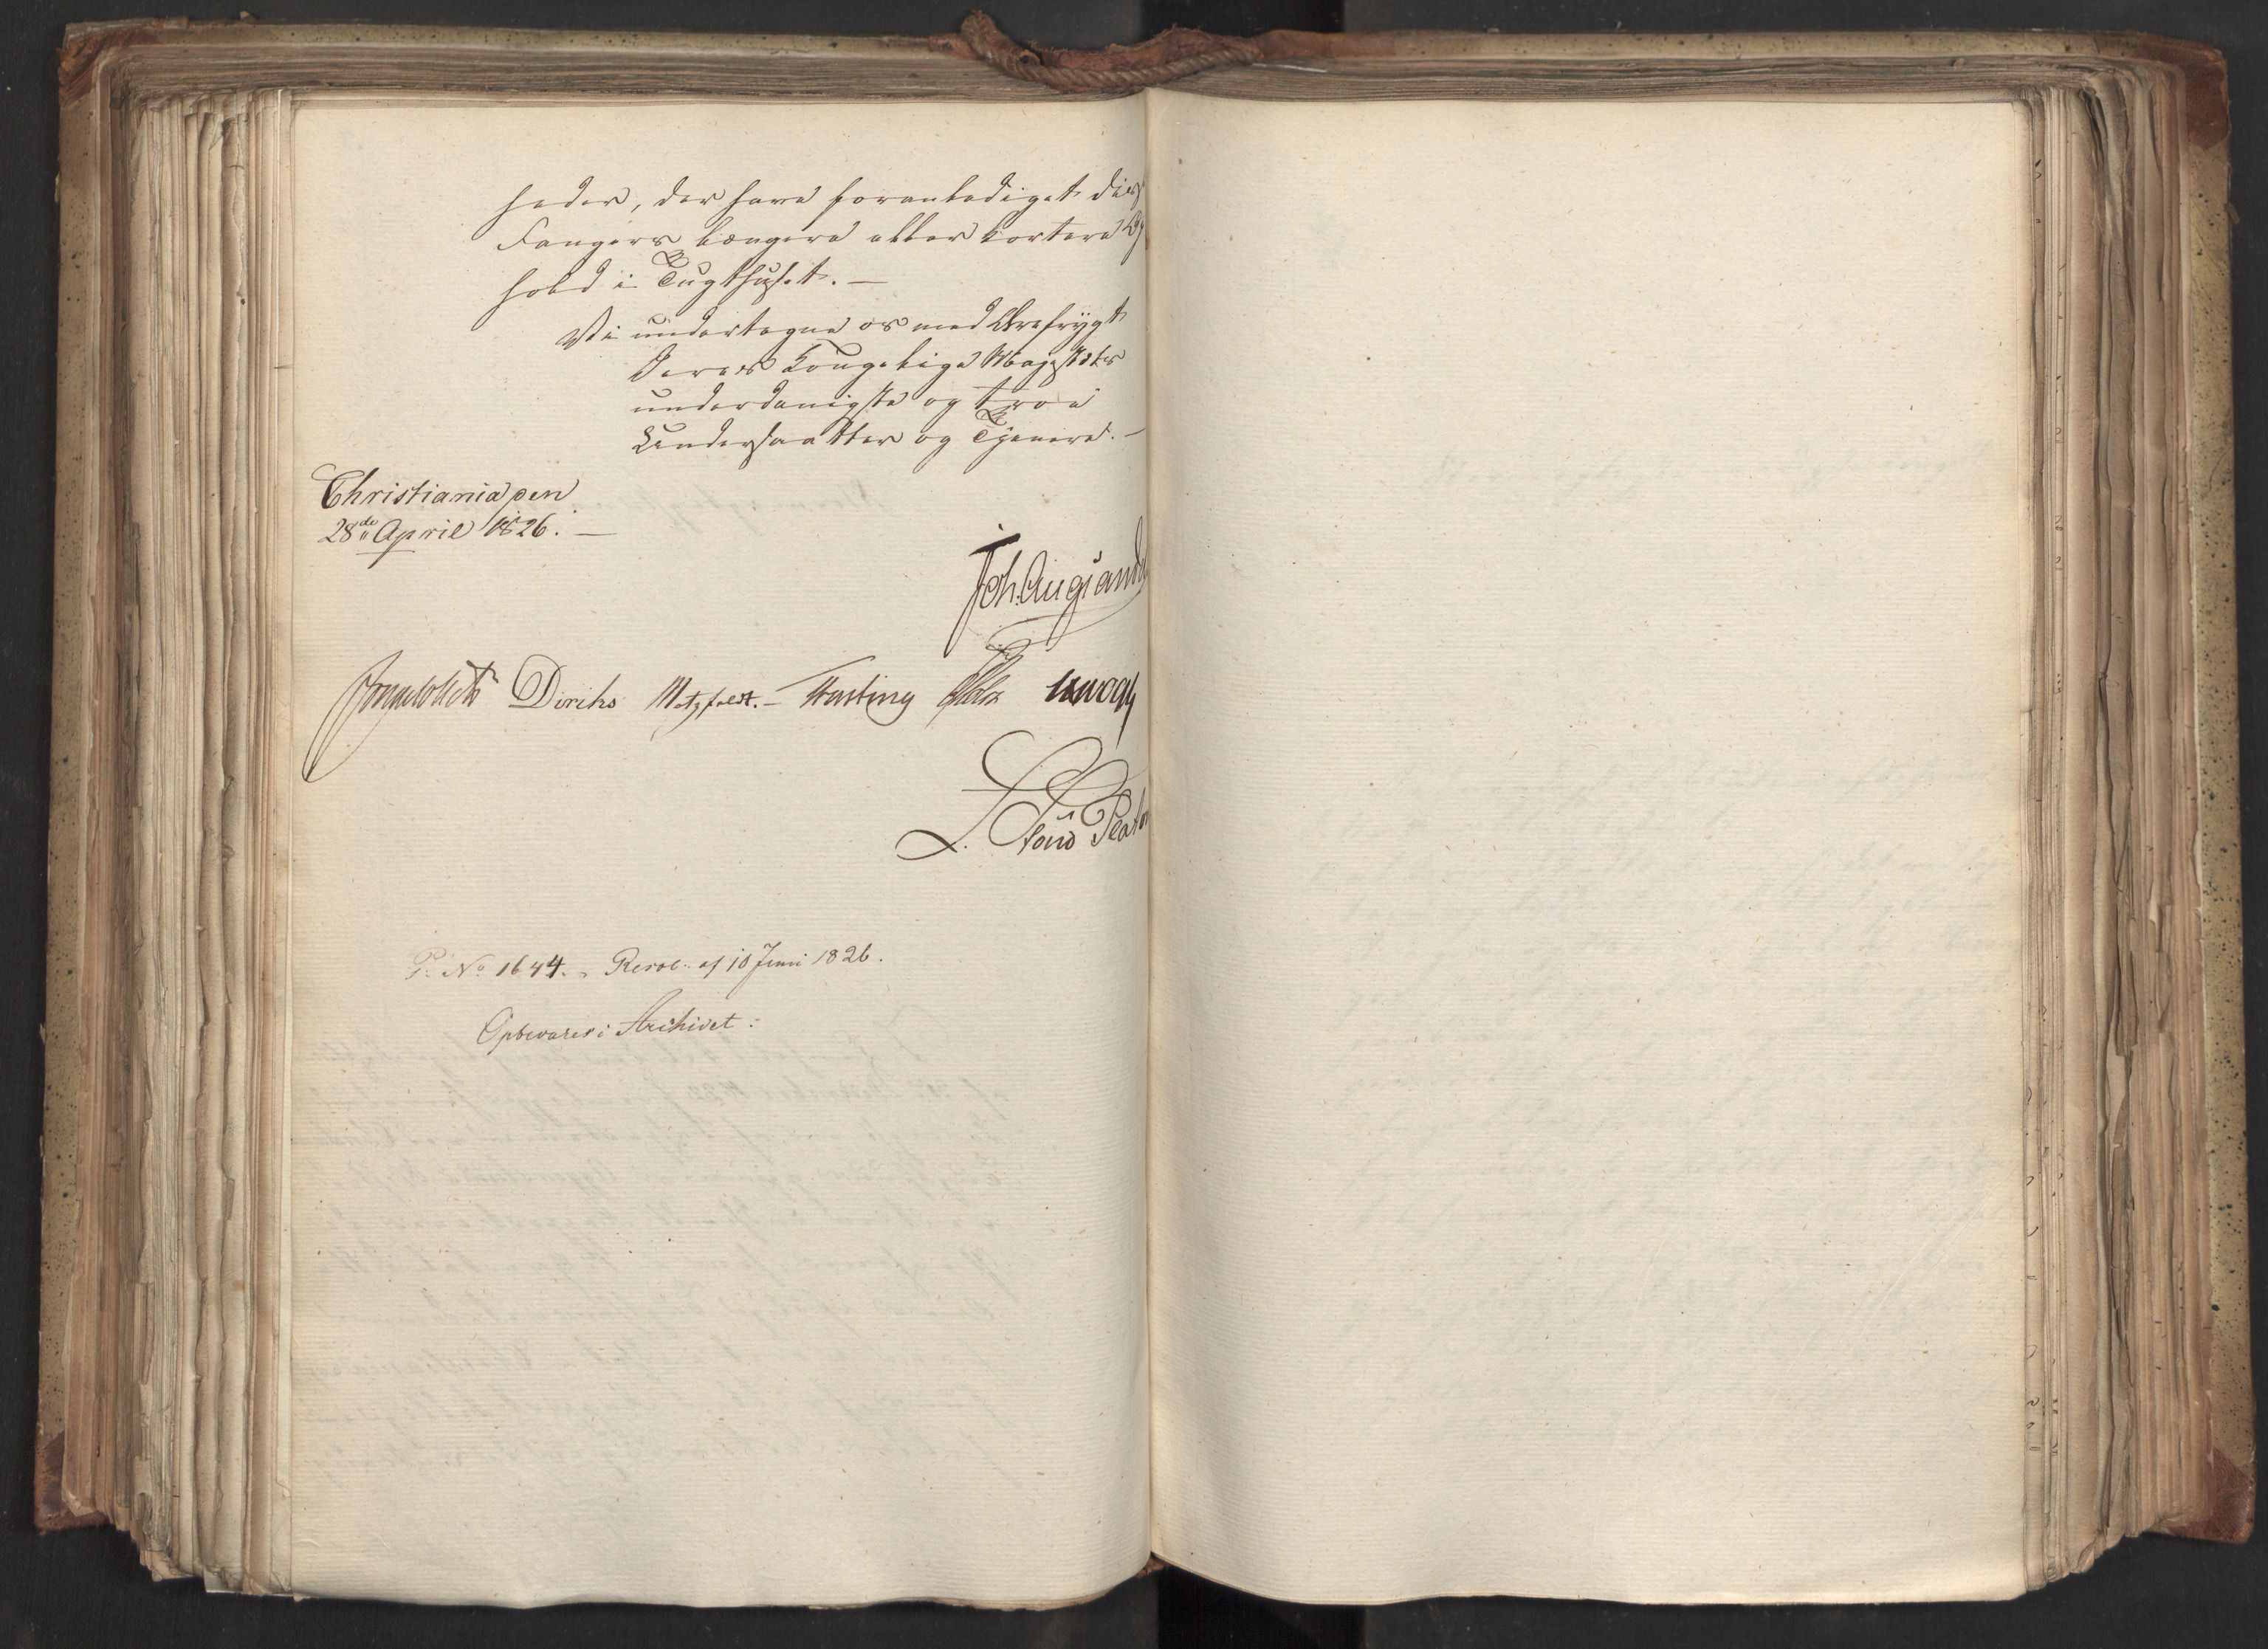 heder, der have foranlediget disse
Fangers længere eller kortere Op
hold i Tugthuset. —
Vi undertegne os med Ærefrygt
Deres Kongelige Majestæts
underdanigste og troe
Undersaatter og Tjenere. —
Christiania den
28de April 1826. —
Joh. Aug. Sand
Diriks Motzfeldt. — Fasting
L. Stoud Plat
No 1644. Resol. af 10 Juni 1826.
Opbevares i Archivet.